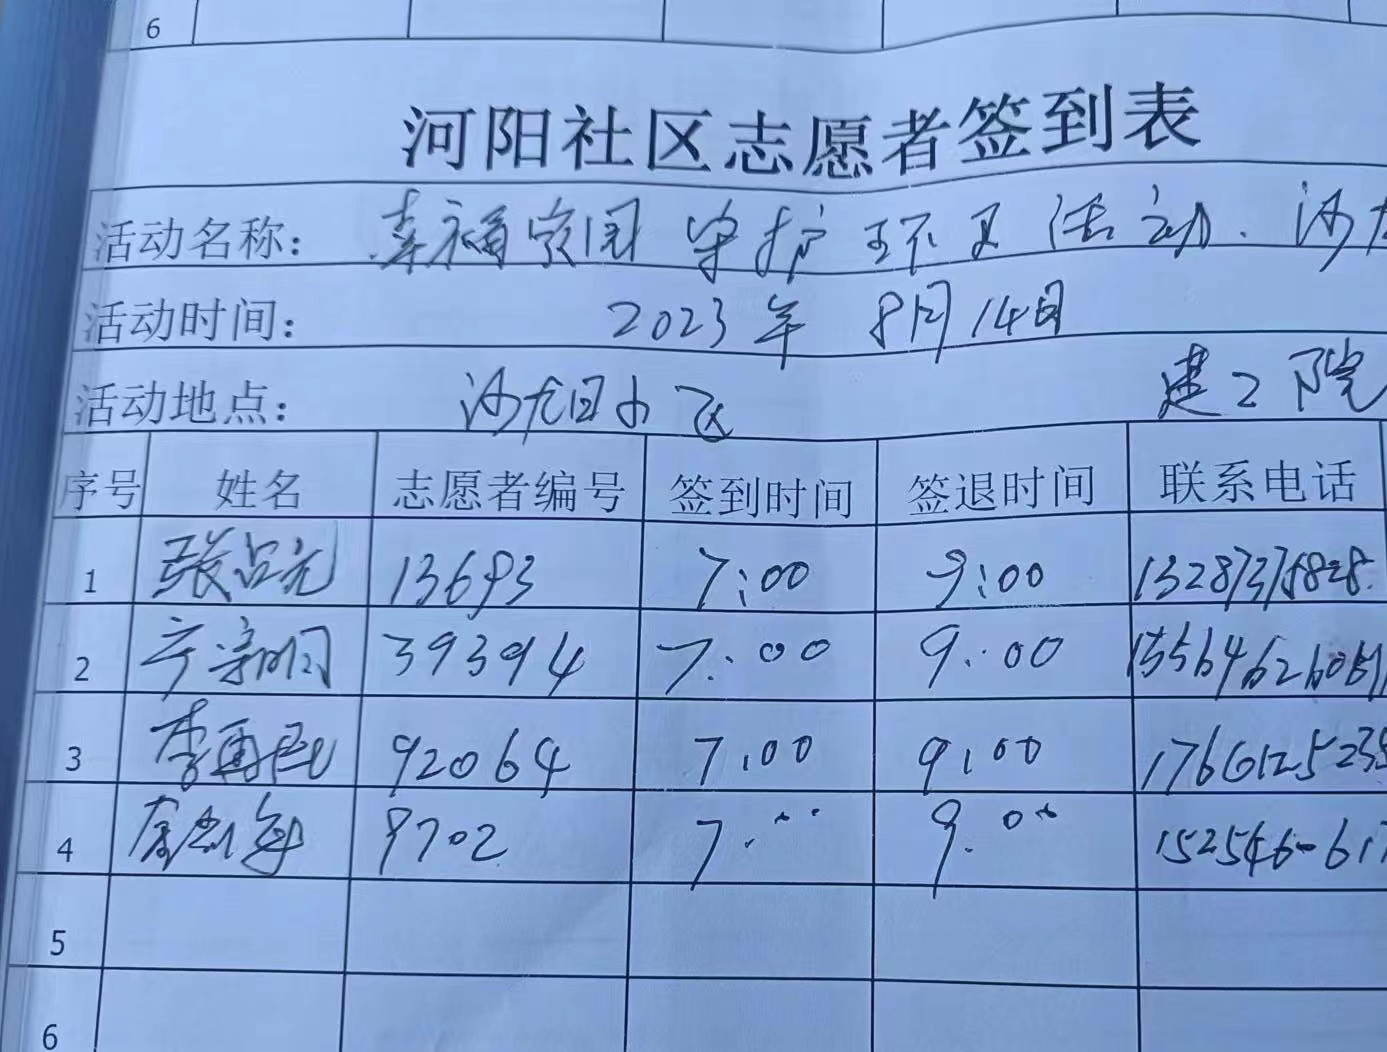 6
河阳社区志愿者签到表
活动名称： 幸福家园 守护环卫 活动. 沙龙
活动时间： 2023年 8月14日
活动地点： 沙龙 建工院
序号 姓名 志愿者编号 签到时间 签退时间 联系电话
1 张占元 13693 7:00 9:00
2 39394 7:00 9:00
3 92064 7:00 9:00
4 9702 7:00 9:00
5
6